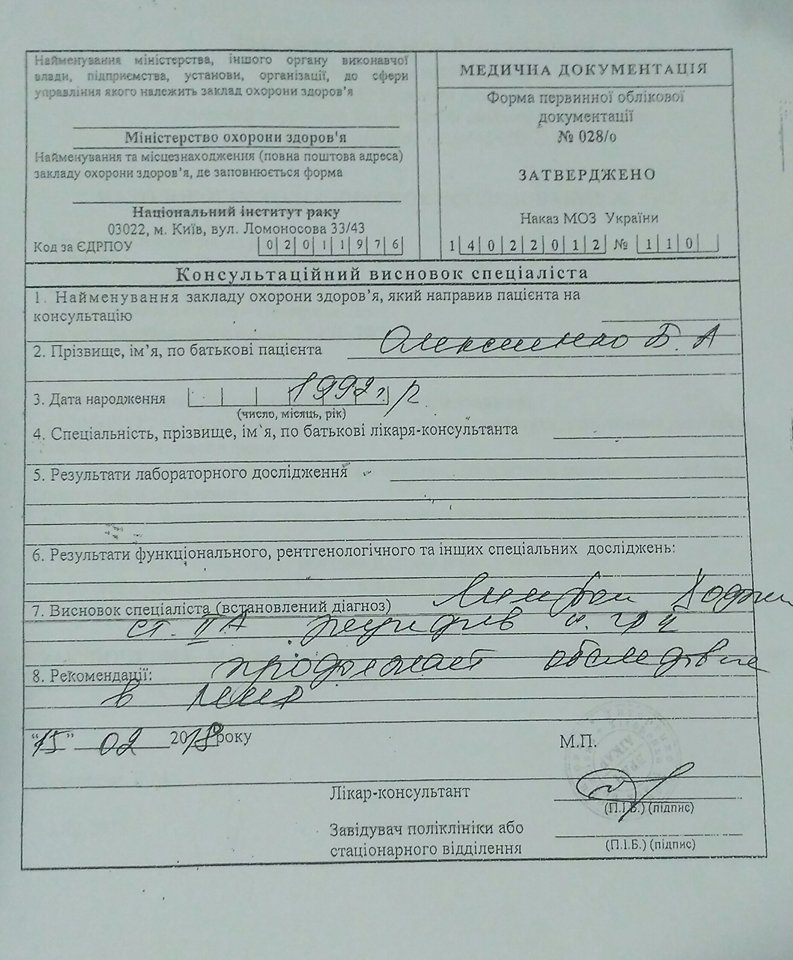 Найменування міністерства, іншого органу виконавчої
влади, підприємства, установи, організації, до сфери
управління якого належить заклад охорони здоров'я
Міністерство охорони здоров'я
Найменування та місцезнаходження (повна поштова адреса)
закладу охорони здоров'я, де заповнюється форма
Національний інститут раку
03022, м. Київ, вул. Ломоносова 33/43
Код за ЄДРПОУ 02011976
МЕДИЧНА ДОКУМЕНТАЦІЯ
Форма первинної облікової
документації
№ 028/о
ЗАТВЕРДЖЕНО
Наказ МОЗ України
14022012 № 110
Консультаційний висновок спеціаліста
1. Найменування закладу охорони здоров'я, який направив пацієнта на
консультацію
2. Прізвище, ім'я, по батькові пацієнта Олексієнко Б. А
3. Дата народження 1992 г. р
(число, місяць, рік)
4. Спеціальність, прізвище, ім'я, по батькові лікаря-консультанта
5. Результати лабораторного дослідження
6. Результати функціонального, рентгенологічного та інших спеціальних досліджень:
7. Висновок спеціаліста (встановлений діагноз) Лимфома Ходжкин
ст. II А рецидив
8. Рекомендації: продолжает обследование
в
"15" 02 2018 року
М.П.
Лікар-консультант
(П.І.Б.) (підпис)
Завідувач поліклініки або
стаціонарного відділення
(П.І.Б.) (підпис)